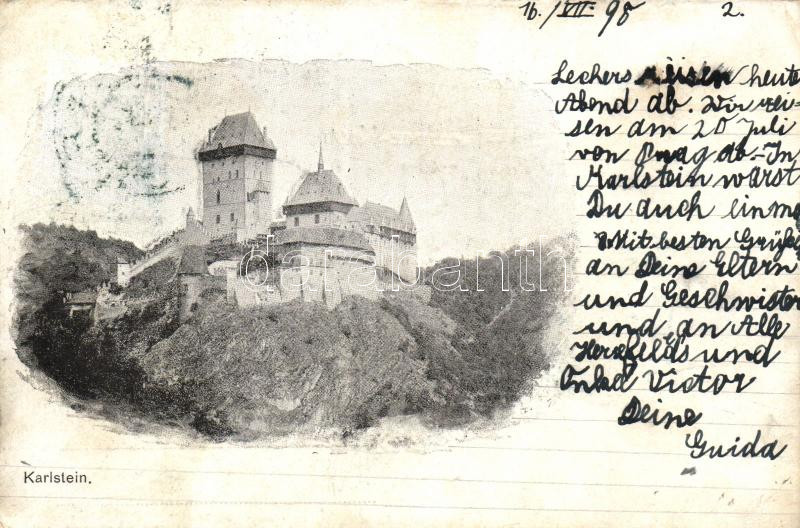 16./VII. 98 2.
Lechers reisen heute
Abend ab. Wir rei-
sen am 20 Juli
von Prag ab.-In
Karlstein warst
Du auch einma
Mit besten Grüße
an Deine Eltern
und Geschwister
und an Alle
Herzfelds und
Onkel Victor
Deine
Guida
darabanth
Karlstein.